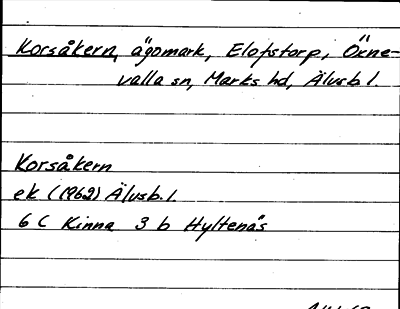 Korsåkern, ägomark, Elofstorp, Öxne-
valla sn, Marks hd, Älvsb l.
Korsåkern
ek (1962) Älvsb. l.
6 C Kinna 3 b Hyltenäs